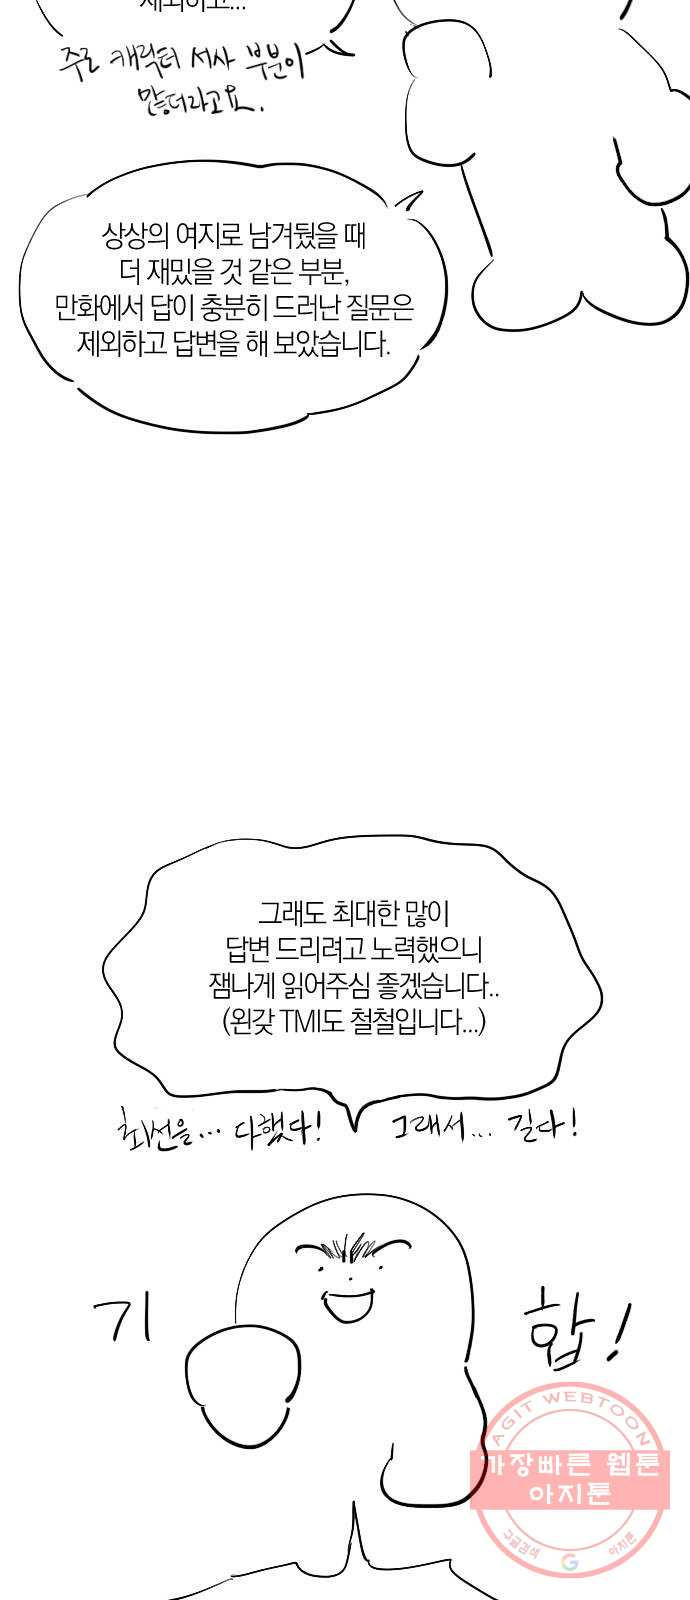 제외하고...
주로 캐릭터 서사 부분이
많더라고요.
상상의 여지로 남겨뒀을 때
더 재밌을 것 같은 부분,
만화에서 답이 충분히 드러난 질문은
제외하고 답변을 해 보았습니다.
그래도 최대한 많이
답변 드리려고 노력했으니
잼나게 읽어주심 좋겠습니다..
(왼갖 TMI도 철철입니다...)
최선을... 다했다! 그래서... 길다!
기 합!
AGIT WEBTOON
가장빠른 웹툰
아지툰
구글검색 G 아지툰